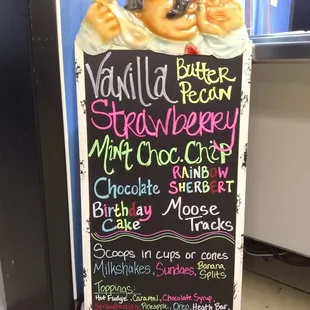 Vanilla Butter Pecan
Strawberry
Mint Choc. Chip
Chocolate RAINBOW SHERBERT
Birthday Cake Moose Tracks
Scoops in cups or cones
Milkshakes, Sundaes, Banana Splits
Toppings:
Hot Fudge, Caramel, Chocolate Syrup,
Pineapple, Oreo, Heath Bar,